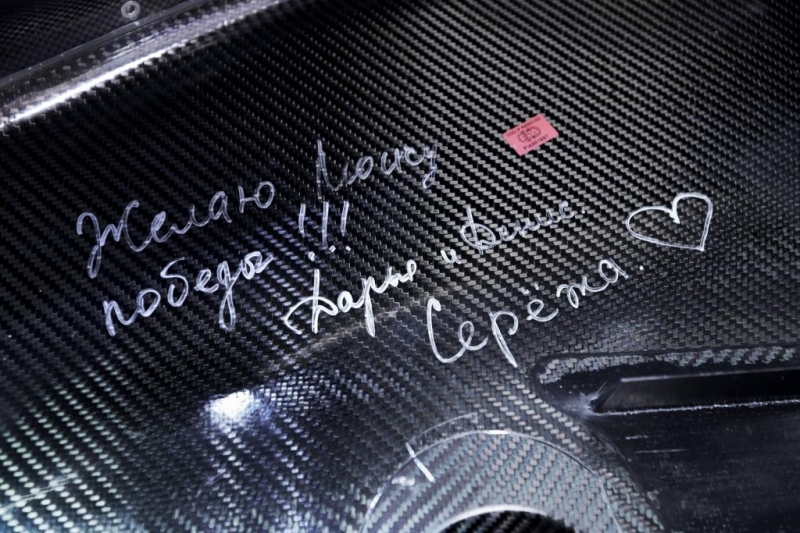 Желаю Моику
победы !!!
Дарья и Денис.
Серёжа.